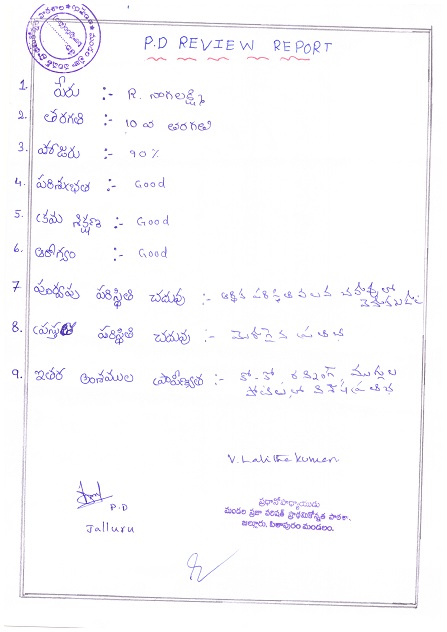 P.D REVIEW REPORT
1. పేరు :- R. నాగలక్ష్మి
2. తరగతి :- 10 వ తరగతి
3. హాజరు :- 90%
4. పరిశుభ్రత :- Good
5. క్రమ శిక్షణ :- Good
6. ఆరోగ్యం :- Good
7 పూర్వపు పరిస్థితి చదువు :- ఆర్థిక పరిస్థితి వలన చదువులో
8. ప్రస్తుత పరిస్థితి చదువు :- మెరుగైన ప్రతిభ
9. ఇతర అంశముల ప్రావీణ్యత :- కో-కో, రన్నింగ్, ముగ్గుల
పోటీలులో విశేష ప్రతిభ
V. Lalitha Kumari
P.D
Jalluru
ప్రధానోపాధ్యాయుడు
మండల ప్రజా పరిషత్ ప్రాథమికోన్నత పాఠశాల,
జల్లూరు, పిఠాపురం మండలం.